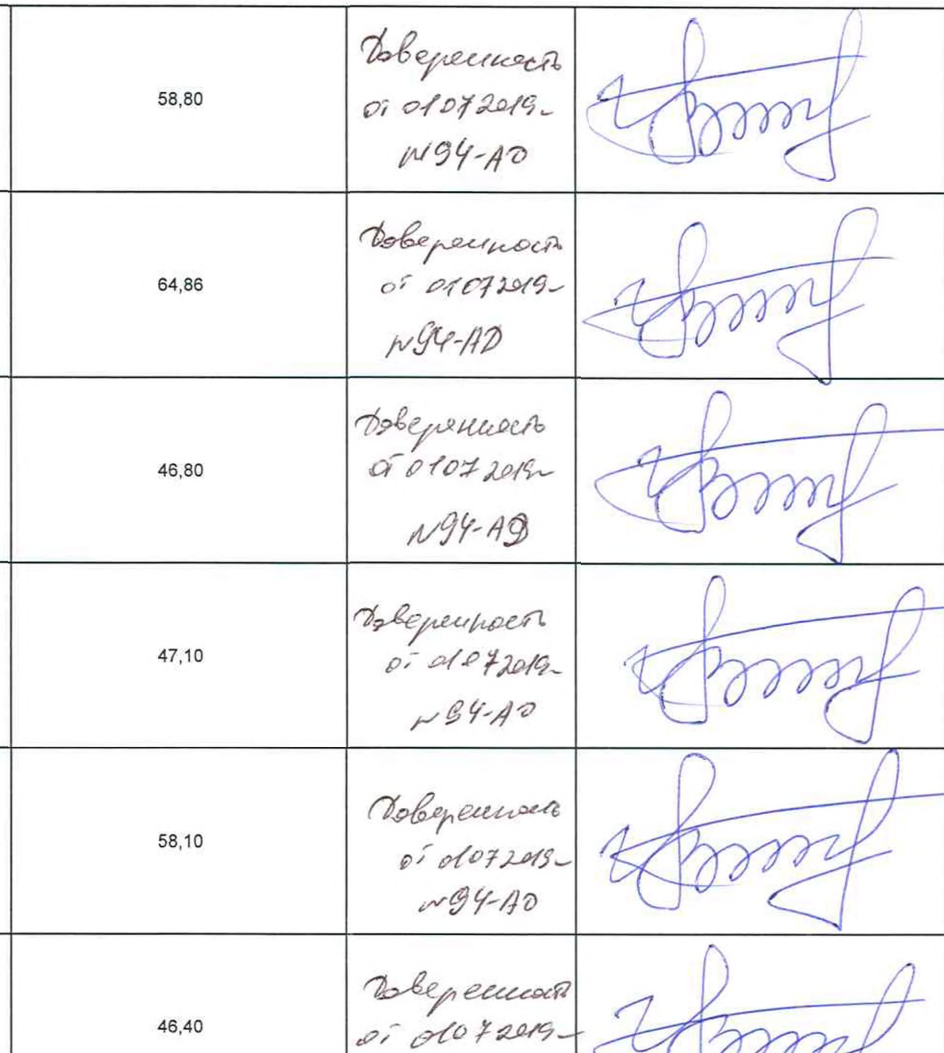 58,80
Доверенность
от 01072019г
N94-АД
64,86
Доверенность
от 01072019г
N94-АД
46,80
Доверенность
от 0107 2019г
N94-АД
47,10
Доверенность
от 01072019г
N94-АД
58,10
Доверенность
от 01072019г
N94-АД
46,40
Доверенность
от 01072019г